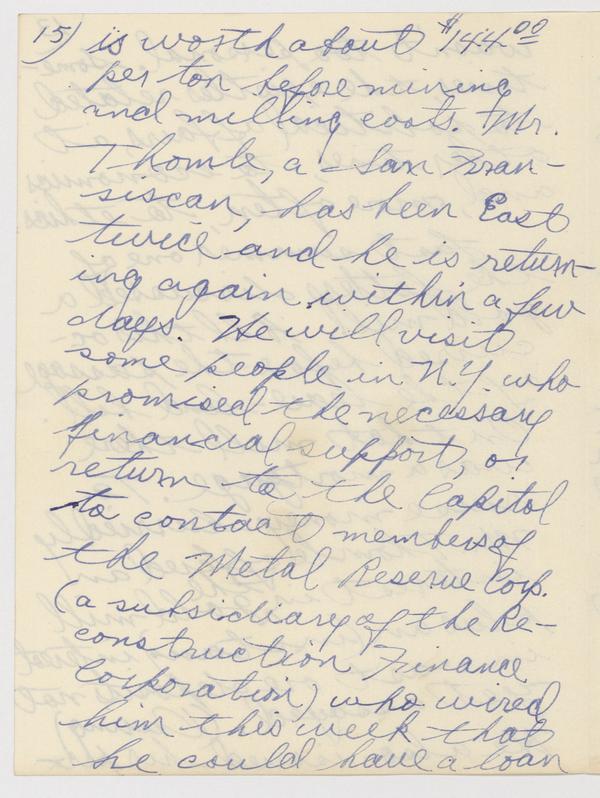 15) is worth about $144.00
per ton before mining
and milling costs. Mr.
Thomle, a San Fran-
siscan, has been East
twice and he is return-
ing again within a few
days. He will visit
some people in N.Y. who
promised the necessary
financial support, or
return to the Capitol
to contact members of
the Metal Reserve Corp.
(a subsidiary of the Re-
construction Finance
Corporation) who wired
him this week that
he could have a loan